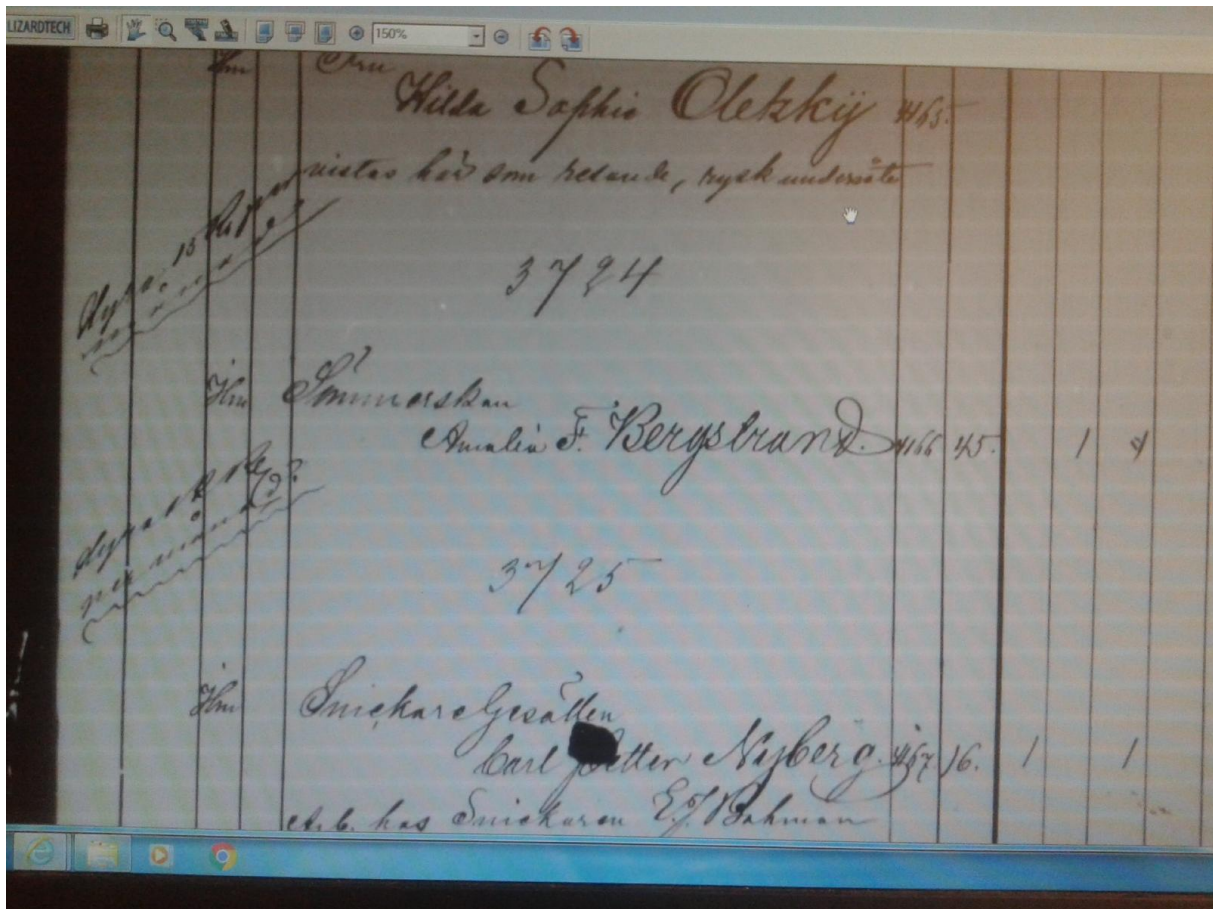 LIZARDTECH
150%
Hm Fru
Hilda Sophie Olekkij 4165.
vistas här som resande, rysk undersåte
hyra: 15 
3724
Hm Sömmerskan
Amalia F. Bergstrand. 4166 45. 1 1
hyra
per månad
3725
Hm Snickare Gesällen
Carl Petter Nyberg. 4167. 16. 1 1
Arb. hos Snickaren E.J. Bohman